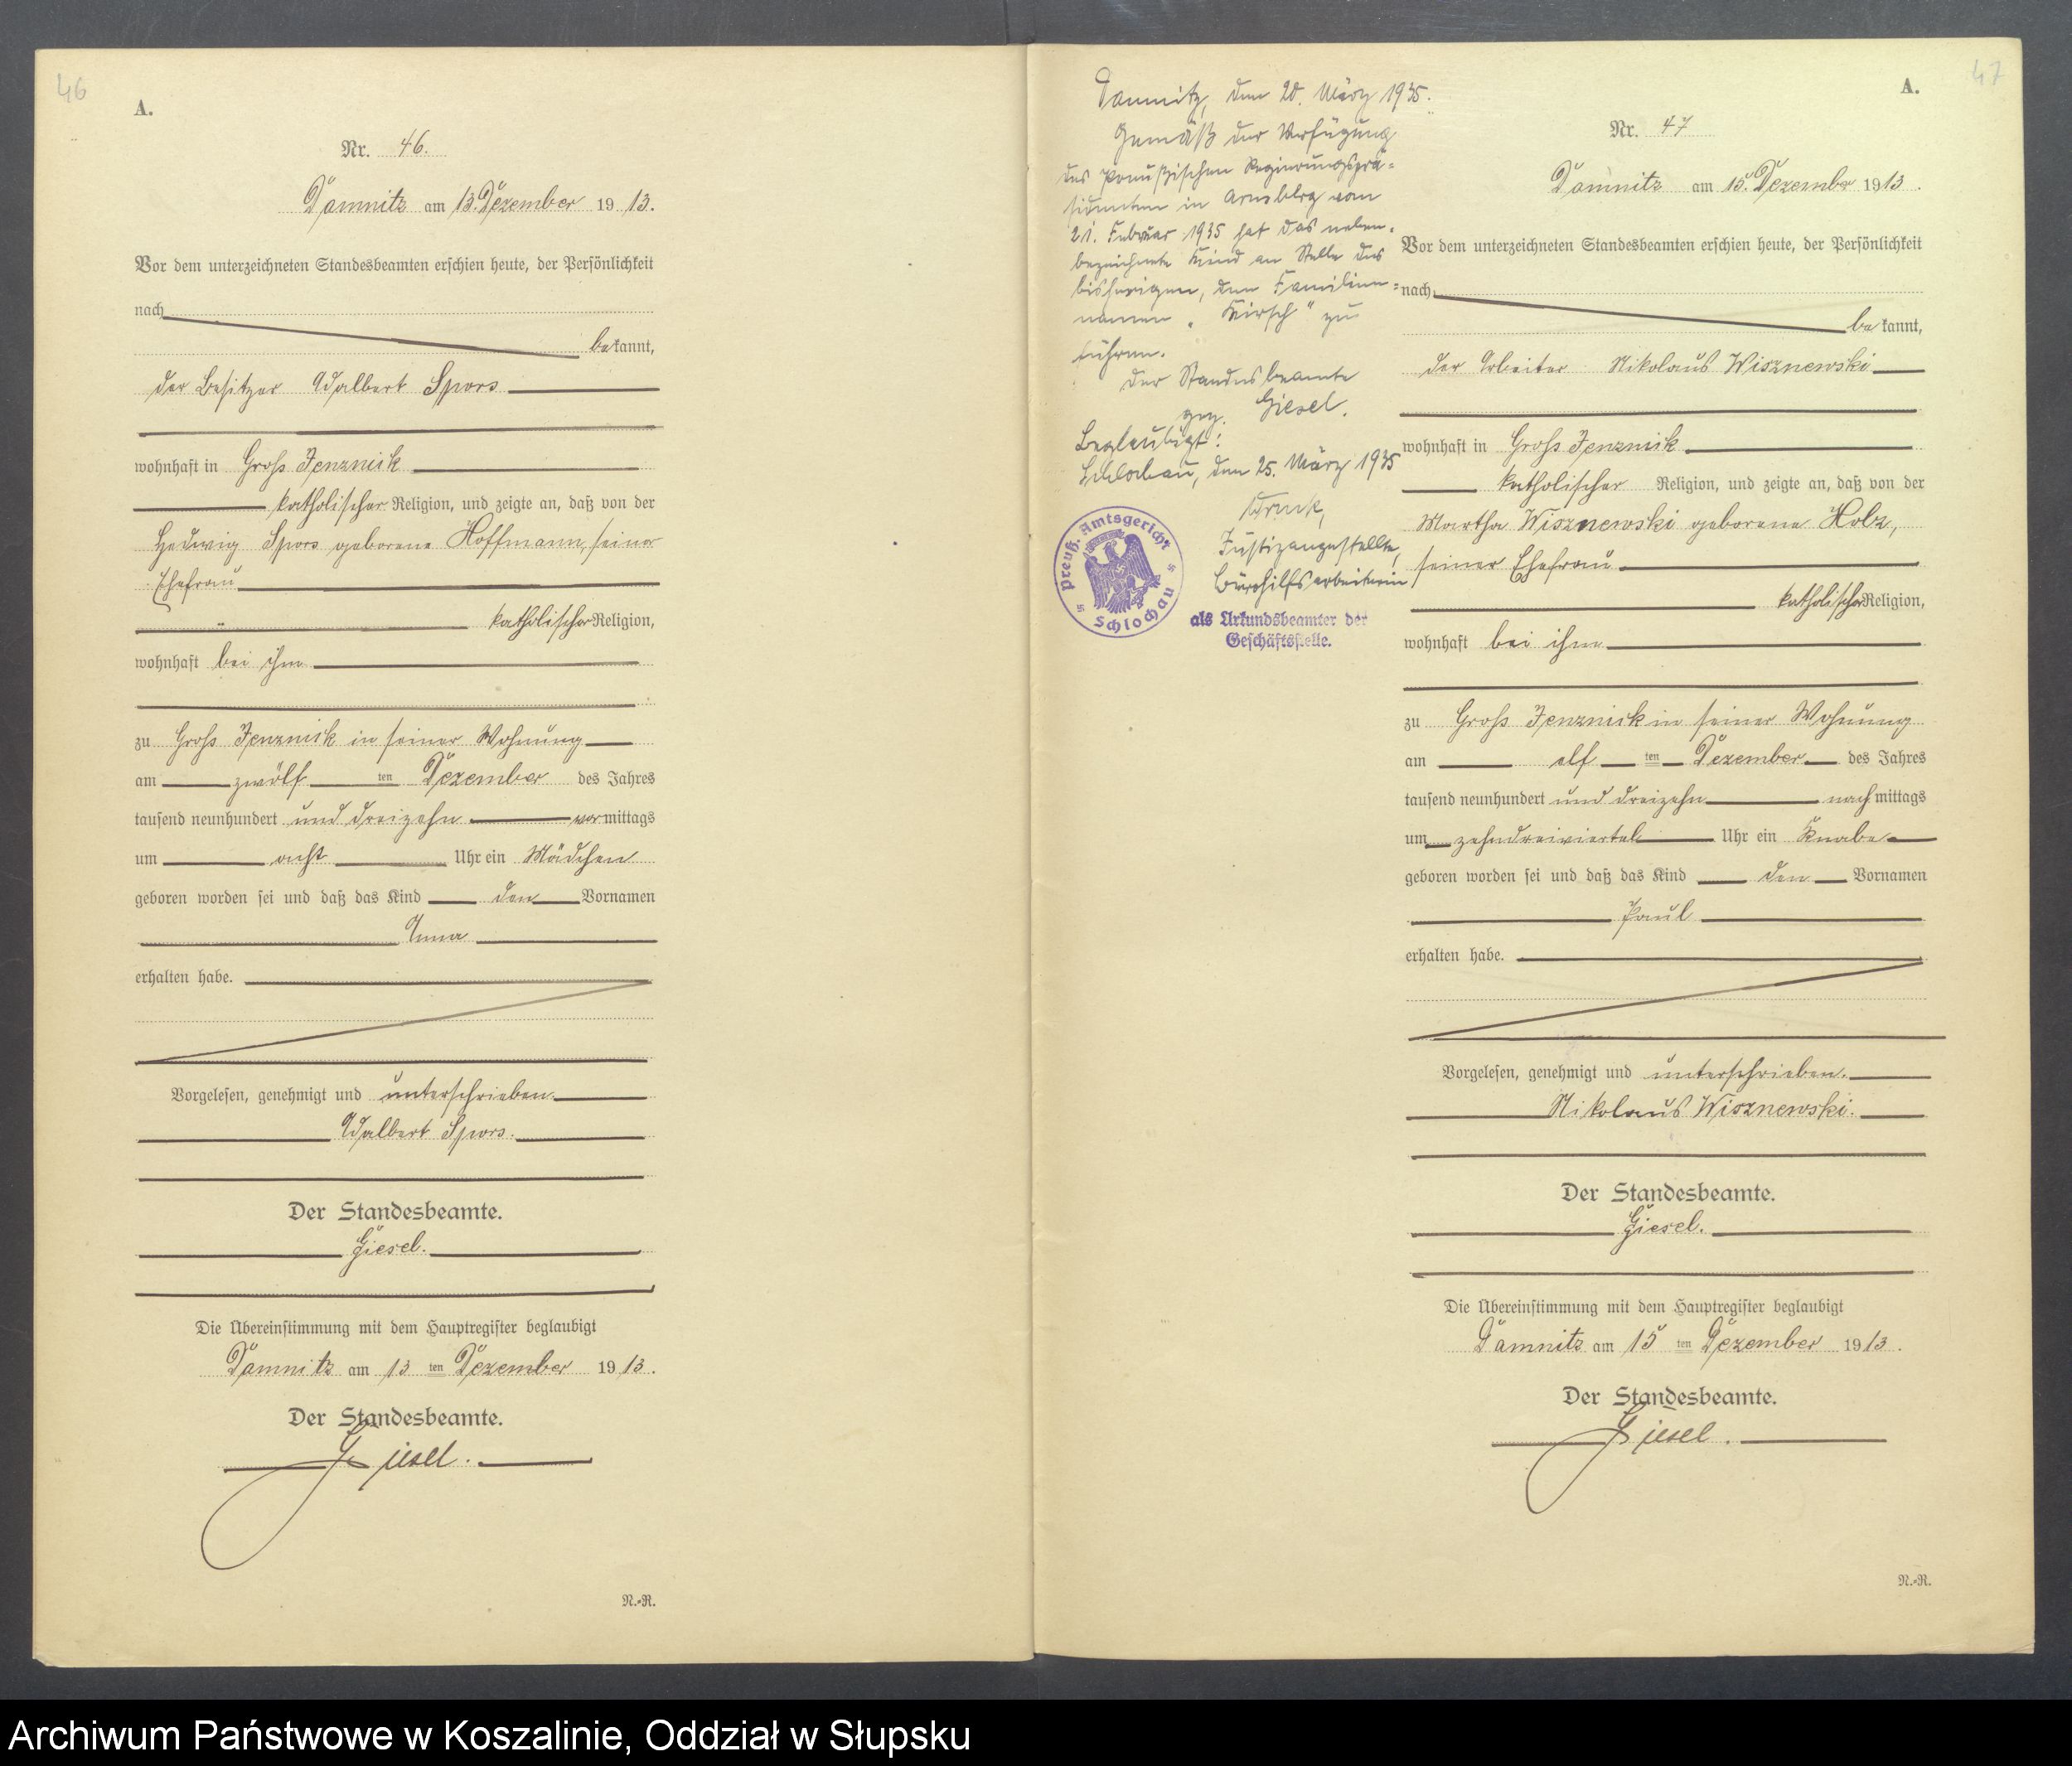 46
A.
Nr. 46.
Damnitz am 13. Dezember 1913.
Vor dem unterzeichneten Standesbeamten erschien heute, der Persönlichkeit
nach
bekannt,
der Besitzer Adalbert Spors
wohnhaft in Groß Jenznick
katholischer Religion, und zeigte an, daß von der
Hedwig Spors geborene Hoffmann, seiner
Ehefrau
katholischer Religion,
wohnhaft bei ihm
zu Groß Jenznick in seiner Wohnung
am zwölf ten Dezember des Jahres
tausend neunhundert und dreizehn vormittags
um acht Uhr ein Mädchen
geboren worden sei und daß das Kind den Vornamen
Anna
erhalten habe.
Vorgelesen, genehmigt und unterschrieben.
Adalbert Spors.
Der Standesbeamte.
Giesel.
Die Übereinstimmung mit dem Hauptregister beglaubigt
Damnitz am 13 ten Dezember 1913.
Der Standesbeamte.
Giesel.
N.=R.
Damnitz, den 20. März 1935.
Gemäß der Verfügung
des Preußischen Regierungsprä=
sidenten in Arnsberg vom
21. Februar 1935 hat das neben=
bezeichnete Kind an Stelle des
bisherigen, den Familien=
namen „Kirsch" zu
führen.
Der Standesbeamte
gez. Giesel.
Beglaubigt:
Schlochau, den 25. März 1935
Justizangestellte,
Bürohilfsarbeiterin
als Urkundsbeamter der
Geschäftsstelle.
Preuß. Amtsgericht
Schlochau
47
A.
Nr. 47
Damnitz am 15. Dezember 1913.
Vor dem unterzeichneten Standesbeamten erschien heute, der Persönlichkeit
nach
bekannt,
der Arbeiter Nikolaus Wisznewski
wohnhaft in Groß Jenznick
katholischer Religion, und zeigte an, daß von der
Martha Wisznewski geborene Holz,
seiner Ehefrau
katholischer Religion,
wohnhaft bei ihm
zu Groß Jenznick in seiner Wohnung
am elf ten Dezember des Jahres
tausend neunhundert und dreizehn nachmittags
um zehndreiviertel Uhr ein Knabe
geboren worden sei und daß das Kind den Vornamen
Paul
erhalten habe.
Vorgelesen, genehmigt und unterschrieben.
Nikolaus Wisznewski.
Der Standesbeamte.
Giesel.
Die Übereinstimmung mit dem Hauptregister beglaubigt
Damnitz am 15 ten Dezember 1913.
Der Standesbeamte.
Giesel.
N.=R.
Archiwum Państwowe w Koszalinie, Oddział w Słupsku